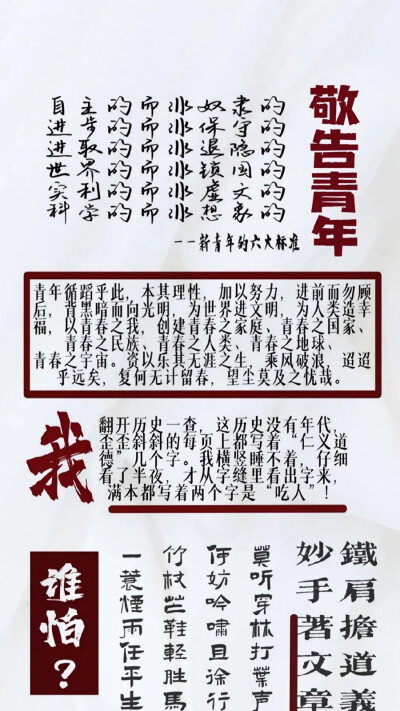 敬告青年
自主的而非奴隶的
进步的而非保守的
进取的而非退隐的
世界的而非锁国的
实利的而非虚文的
科学的而非想象的
——新青年的六大标准
青年循蹈乎此，本其理性，加以努力，进前而勿顾
后，背黑暗而向光明，为世界进文明，为人类造幸
福，以青春之我，创建青春之家庭、青春之国家、
青春之民族、青春之人类、青春之地球、
青春之宇宙。资以乐其无涯之生。乘风破浪，迢迢
乎远矣，复何无计留春，望尘莫及之忧哉。
我
翻开历史一查，这历史没有年代，
歪歪斜斜的每页上都写着“仁义道
德”几个字。我横竖睡不着，仔细
看了半夜，才从字缝里看出字来，
满本都写着两个字是“吃人”！
鐵肩擔道義
妙手著文章
莫听穿林打葉声
何妨吟嘯且徐行
竹杖芒鞋輕勝馬
谁怕？
一蓑煙雨任平生